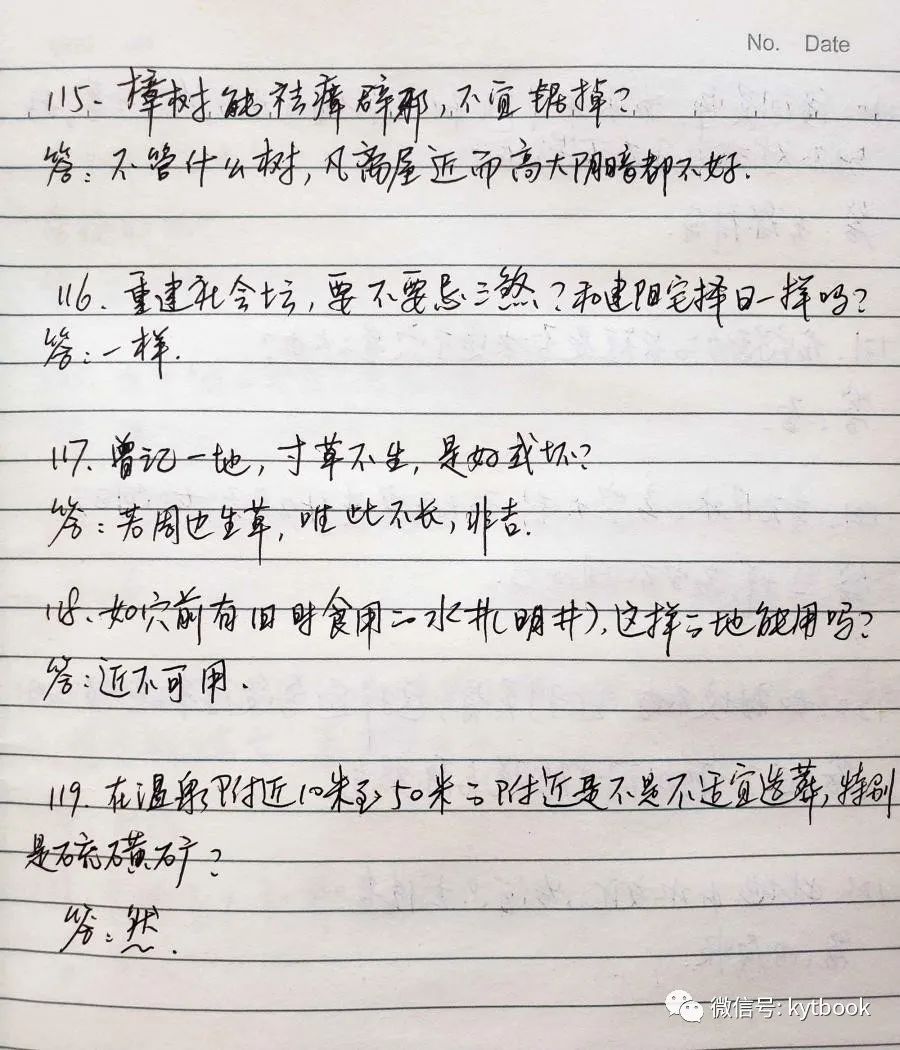 No. Date
115、樟树能祛瘴辟邪,不宜锯掉?
答:不管什么树,凡离屋近而高大阴暗都不好.
116、重建社会坛,要不要忌三煞?和建阳宅择日一样吗?
答:一样.
117、曾记一地,寸草不生,是好或坏?
答:若周边生草,唯此不长,非吉.
118、如穴前有旧时食用之水井(明井),这样之地能用吗?
答:近不可用.
119、在温泉附近10米至50米之附近是不是不适宜造葬,特别
是硫磺矿?
答:然.
微信号: kytbook